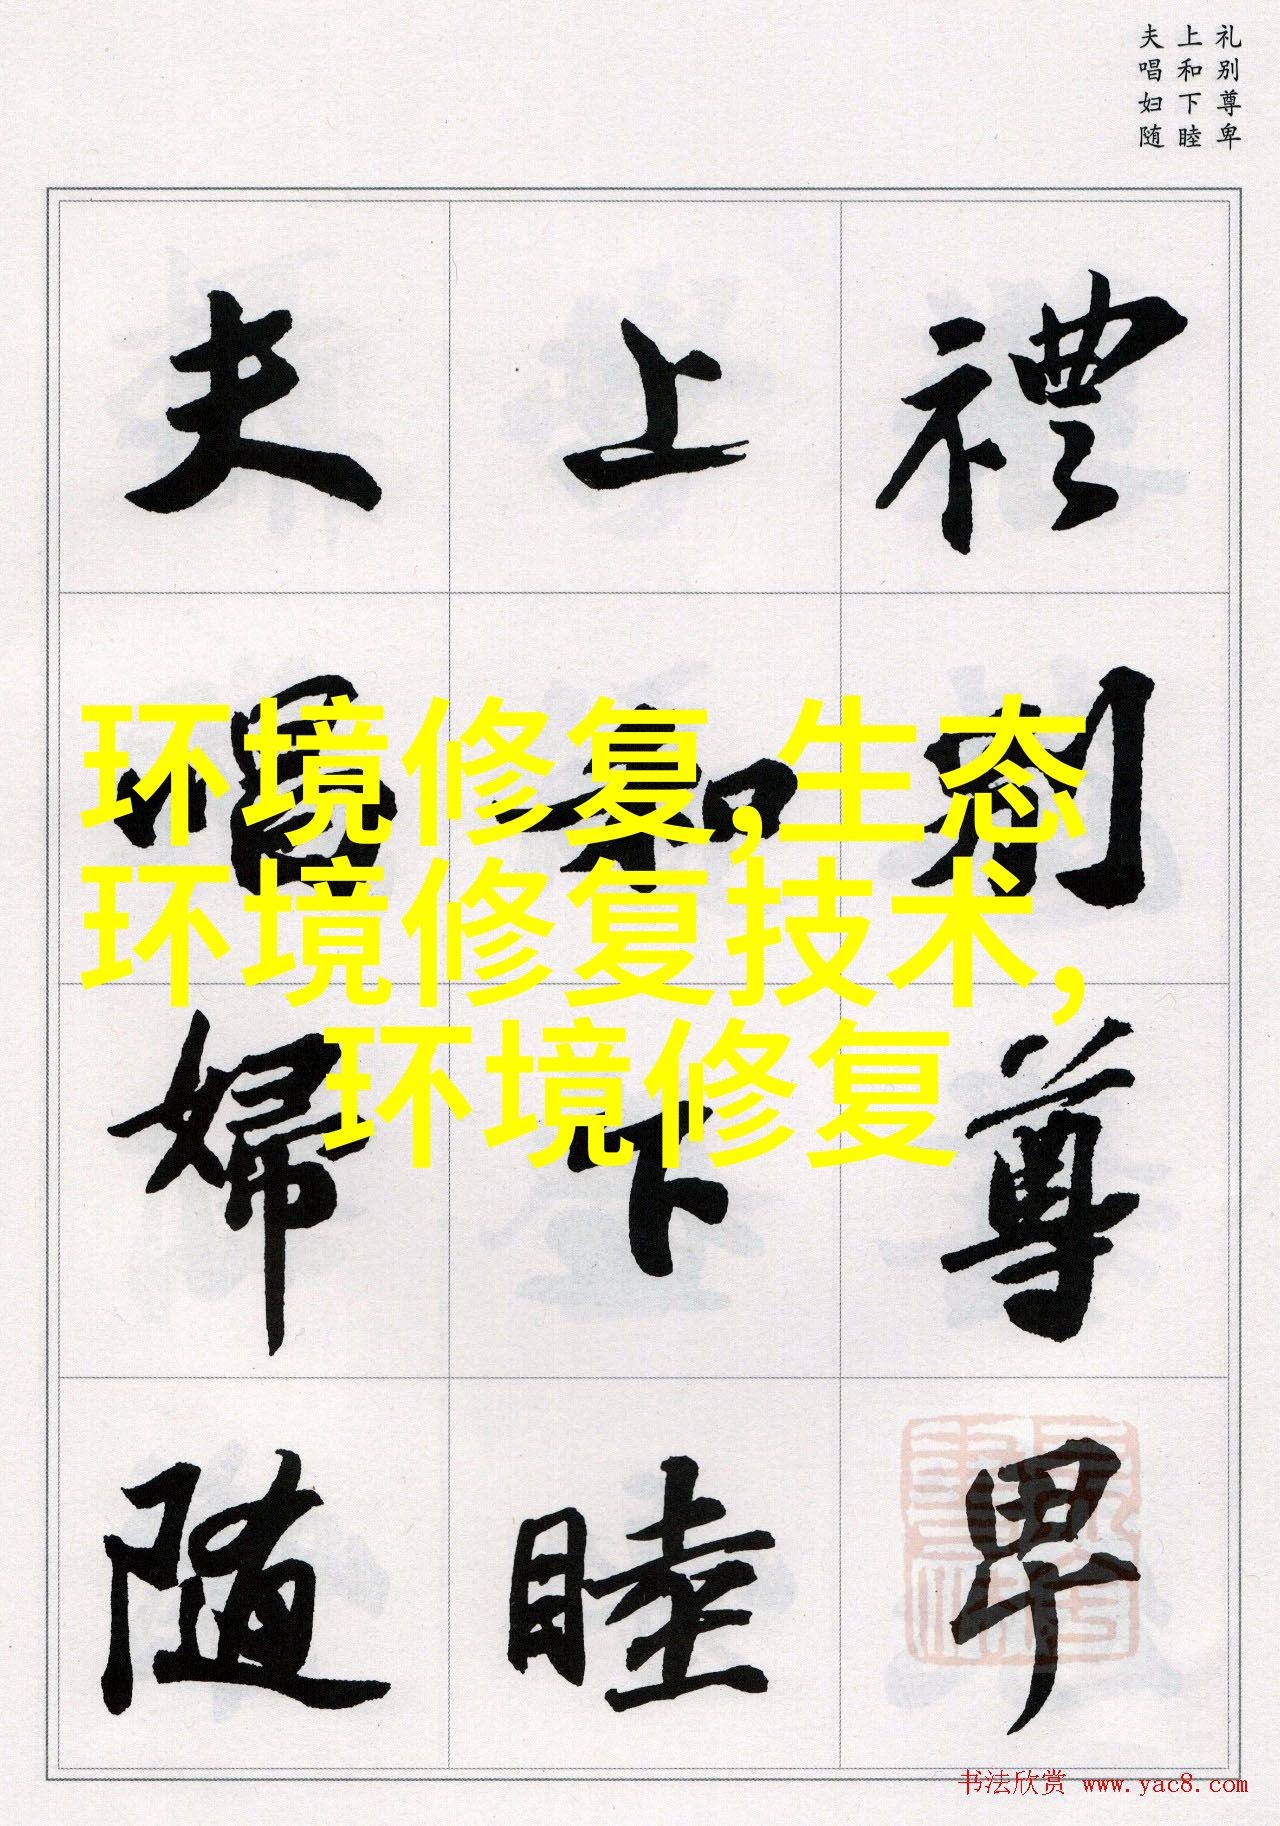 礼别尊卑
上和下睦
夫唱妇随
禮別尊卑
上和下睦
夫唱婦隨
环境修复,生态
环境修复技术,
环境修复
书法欣赏 www.yac8.com